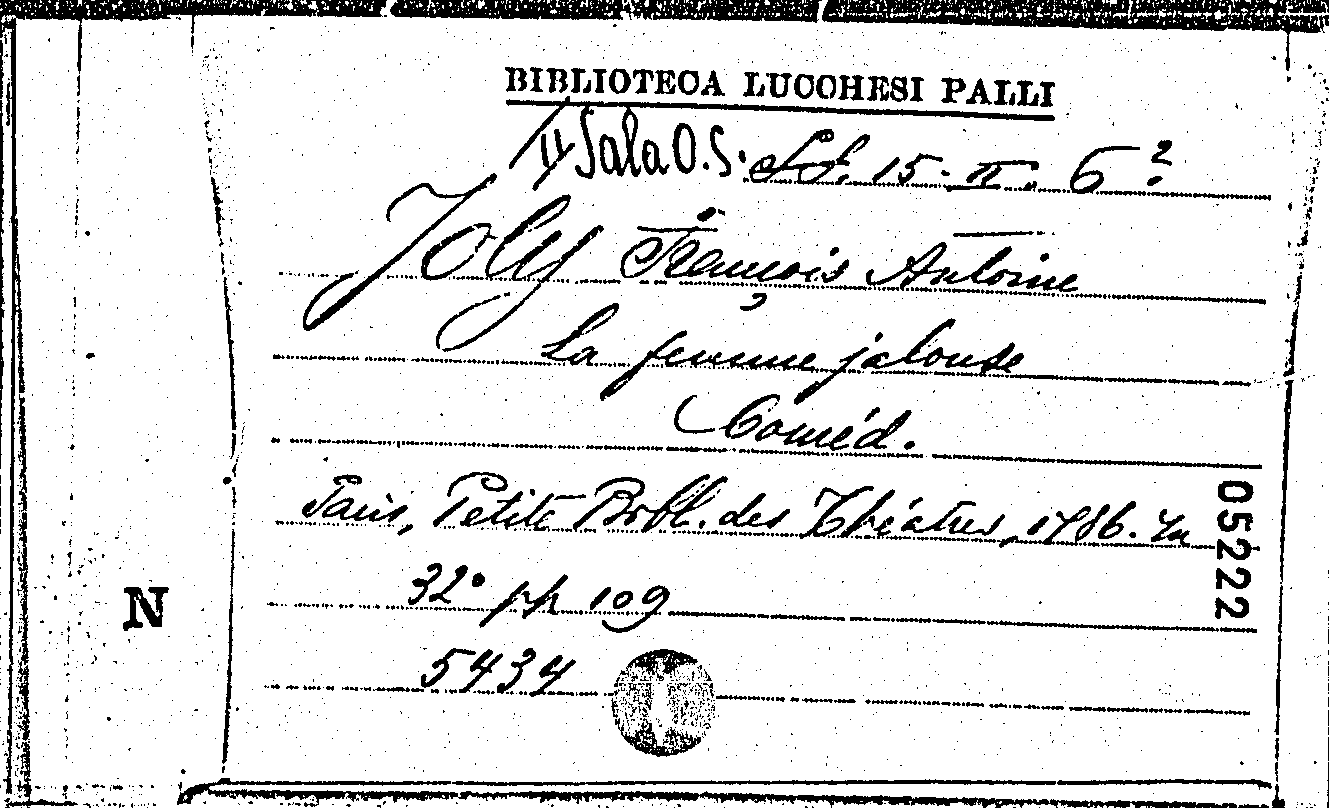 BIBLIOTECA LUCCHESI PALLI
II Sala O.S. Sc. 15. II. 6²
Joly François Antoine
La femme jalouse
Coméd.
Paris, Petite Bibl. des Théatres, 1786. In
32° pp 109
5434
N
05222